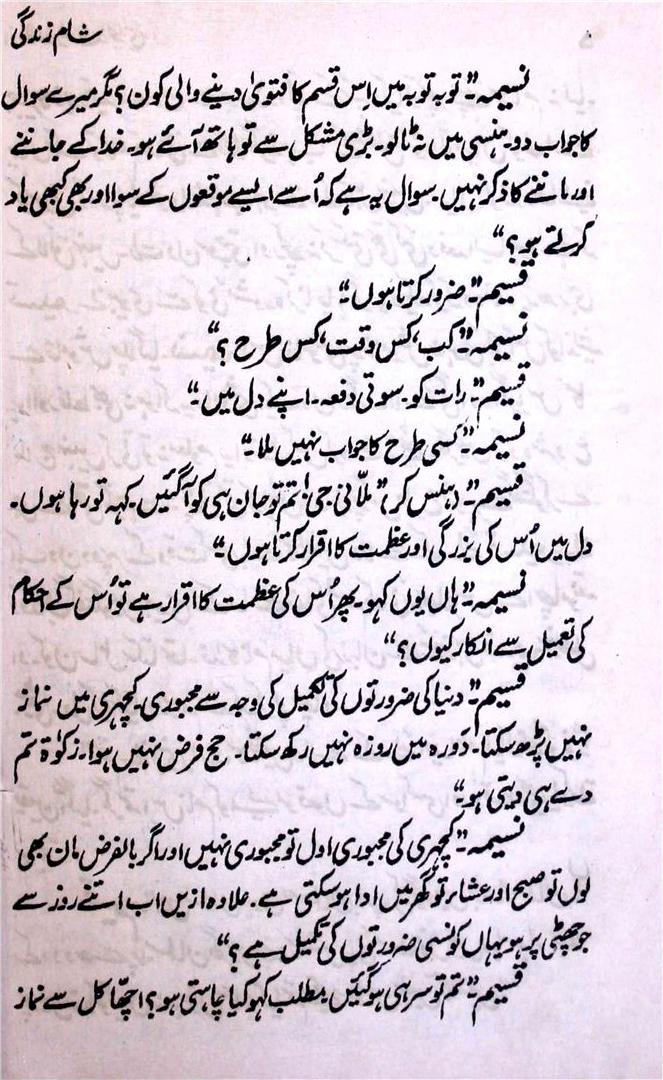 شام زندگی
نسیمہ "توبہ توبہ میں اس قسم کا فتویٰ دینے والی کون؟ مگر میرے سوال
کا جواب دو۔ ہنسی میں نہ ٹالو۔ بڑی مشکل سے تو ہاتھ آئے ہو۔ خدا کے جاننے
اور ماننے کا ذکر نہیں۔ سوال یہ ہے کہ اُسے ایسے موقعوں کے سوا اور بھی کبھی یاد
کرتے ہو؟"
قسیم "ضرور کرتا ہوں۔"
نسیمہ "کب، کس وقت، کس طرح؟"
قسیم "رات کو۔ سوتی دفعہ۔ اپنے دل میں۔"
نسیمہ "کسی طرح کا جواب نہیں ملا۔"
قسیم "(ہنس کر)" ملّانی جی! تم تو جان ہی کو آگئیں۔ کہہ تو رہا ہوں۔
دل میں اُس کی بزرگی اور عظمت کا اقرار کرتا ہوں۔"
نسیمہ "ہاں یوں کہو۔ پھر اُس کی عظمت کا اقرار ہے تو اُس کے احکام
کی تعمیل سے انکار کیوں؟"
قسیم "دنیا کی ضرورتوں کی تکمیل کی وجہ سے مجبوری۔ کچہری میں نماز
نہیں پڑھ سکتا۔ دَورہ میں روزہ نہیں رکھ سکتا۔ حج فرض نہیں ہوا۔ زکوٰة تم
دے ہی دیتی ہو۔"
نسیمہ "کچہری کی مجبوری اول تو مجبوری نہیں اور اگر بالفرض مان بھی
لوں تو صبح اور عشاء تو گھر میں ادا ہو سکتی ہے۔ علاوہ ازیں اب اتنے روز سے
جو چھٹی پر ہو یہاں کونسی ضرورتوں کی تکمیل ہے؟"
قسیم "تم تو سر ہی ہو گئیں۔ مطلب کہو کیا چاہتی ہو؟ اچھا کل سے نماز